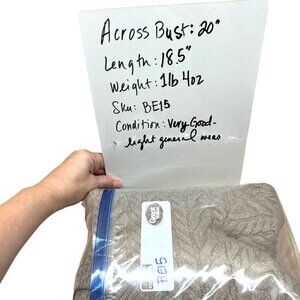 Across Bust: 20"
Length: 18.5"
Weight: 1lb 4oz
Sku: BE15
Condition: Very Good-
light general wear
BE15